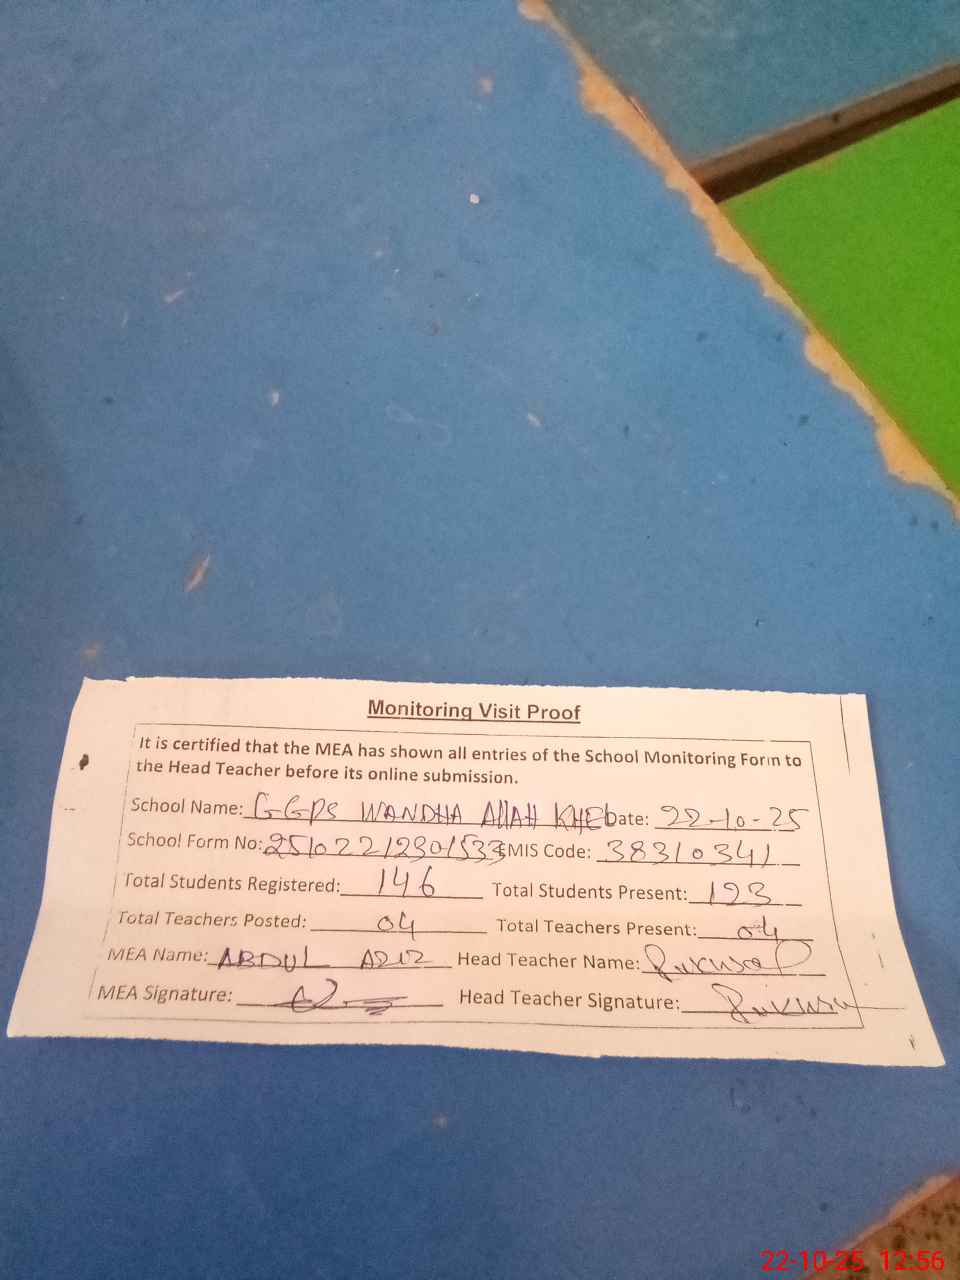 Monitoring Visit Proof
It is certified that the MEA has shown all entries of the School Monitoring Form to
the Head Teacher before its online submission.
School Name: GGPS WANDHA AllAH KHEL Date: 22-10-25
School Form No: 25102212301533 EMIS Code: 38310341
Total Students Registered: 146 Total Students Present: 123
Total Teachers Posted: 04 Total Teachers Present: 04
MEA Name: ABDUL AZIZ Head Teacher Name:
MEA Signature: Head Teacher Signature:
22-10-25 12:56